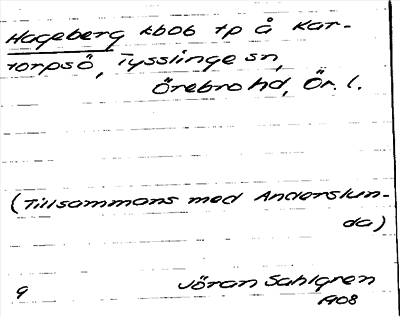 Hageberg kb06 tp å Kar-
torpsö, Tysslinge sn,
Örebro hd, Ör. l.
(Tillsammans med Anderslun-
da)
9 Jöran Sahlgren
1908